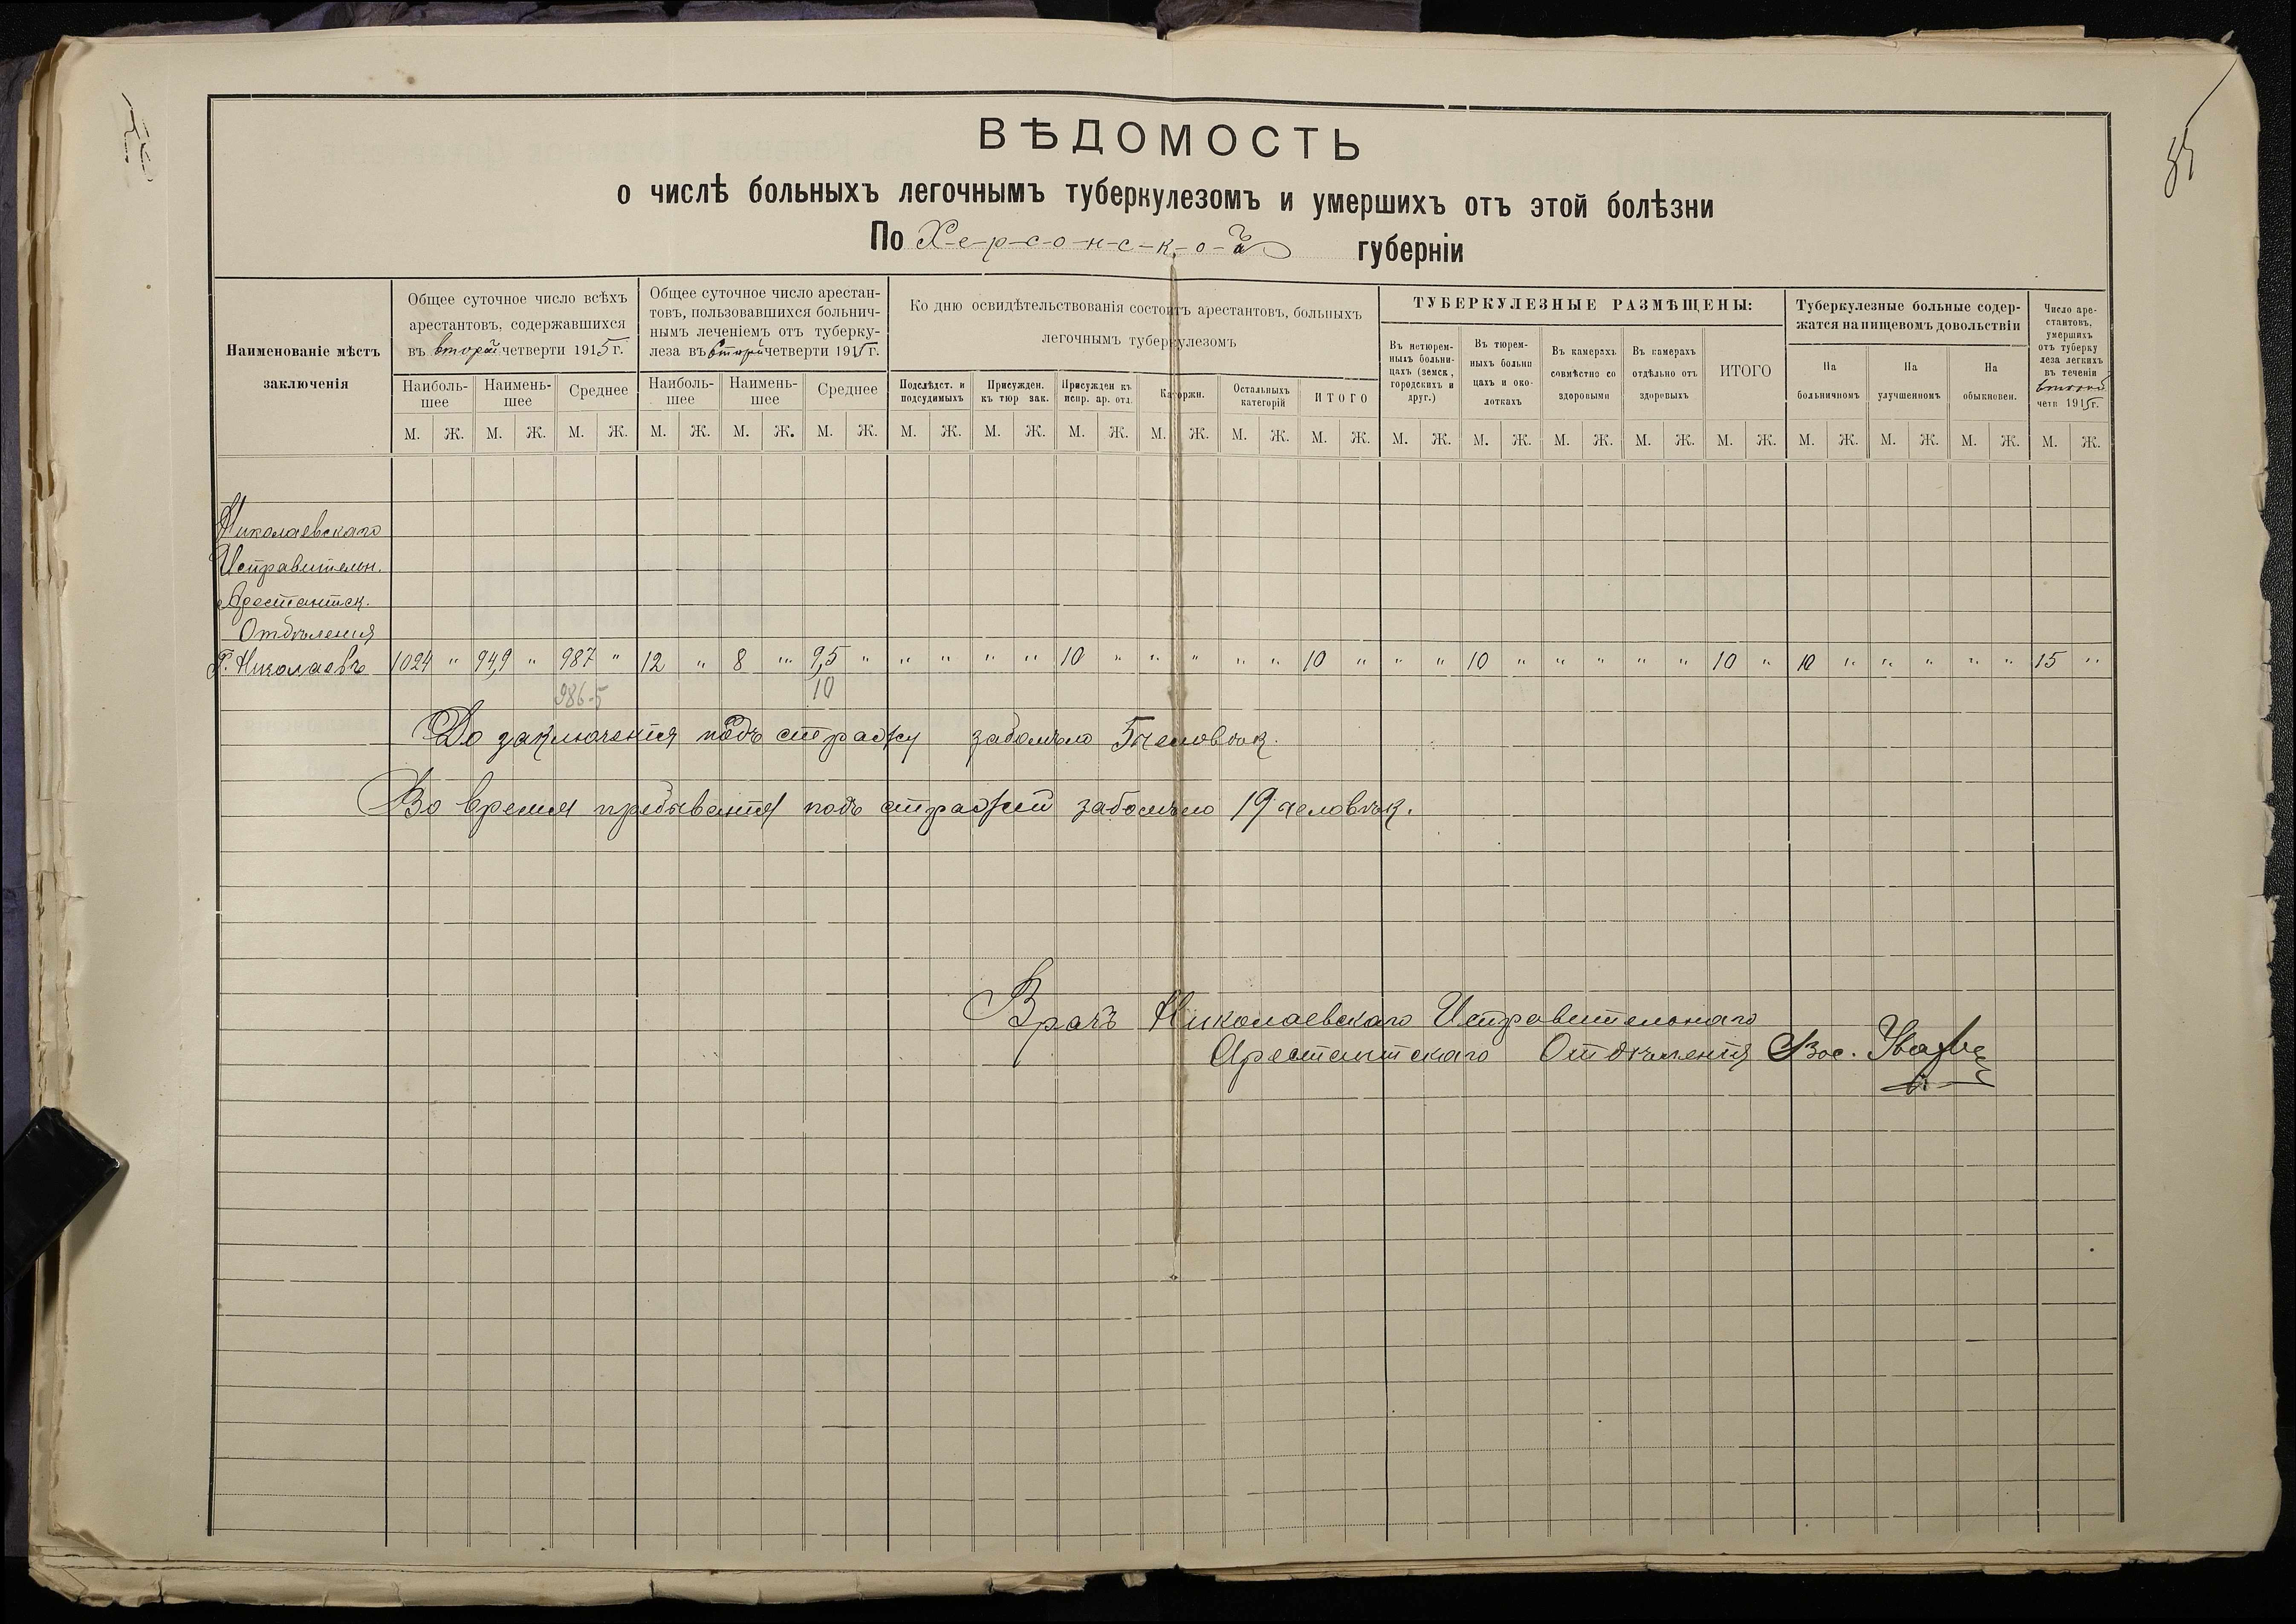 85
ВѢДОМОСТЬ
о числѣ больныхъ легочнымъ туберкулезомъ и умершихъ отъ этой болѣзни
По Херсонской губерніи
Наименованіе мѣстъ
заключенія
Общее суточное число всѣхъ
арестантовъ, содержавшихся
въ второй четверти 1915 г.
Наиболь-
шее
Наимень-
шее
Среднее
Общее суточное число арестан-
товъ, пользовавшихся больнич-
нымъ леченіемъ отъ туберку-
леза въ второй четверти 1915 г.
Наиболь-
шее
Наимень-
шее
Среднее
Ко дню освидѣтельствованія состоитъ арестантовъ, больныхъ
легочнымъ туберкулезомъ
Подслѣдст. и
подсудимыхъ
Присужден.
къ тюр зак.
Присужден къ
испр. ар. отд.
Каторжн.
Остальныхъ
категорій
ИТОГО
ТУБЕРКУЛЕЗНЫЕ РАЗМѢЩЕНЫ:
Въ нетюрем-
ныхъ больни-
цахъ (земск,
городскихъ и
друг.)
Въ тюрем-
ныхъ больни
цахъ и око-
лоткахъ
Въ камерахъ
совмѣстно со
здоровыми
Въ камерахъ
отдѣльно отъ
здоровыхъ
ИТОГО
Туберкулезные больные содер-
жатся на пищевомъ довольствіи
На
больничномъ
На
улучшенномъ
На
обыкновен.
Число аре-
стантовъ,
умершихъ
отъ туберку
леза легкихъ
въ теченіи
второй
четв 1915 г.
М. Ж. М. Ж. М. Ж. М. Ж. М. Ж. М. Ж. М. Ж. М. Ж. М. Ж. М. Ж. М. Ж. М. Ж. М. Ж. М. Ж. М. Ж. М. Ж. М. Ж. М. Ж. М. Ж. М. Ж. М. Ж.
Николаевскаго
Исправительн.
Арестантск.
Отдѣленія
Г. Николаевъ 1024 " 949 " 987 " 12 " 8 " 9,5 " " " " " 10 " " " " " 10 " " " 10 " " " " " 10 " 10 " " " " " 15 "
986-5 10
До заключенія подъ стражу заболѣло 5 человѣк.
Во время пребыванія подъ стражей заболѣло 19 человѣк.
Врачъ Николаевскаго Исправительнаго
Арестантскаго Отдѣленія